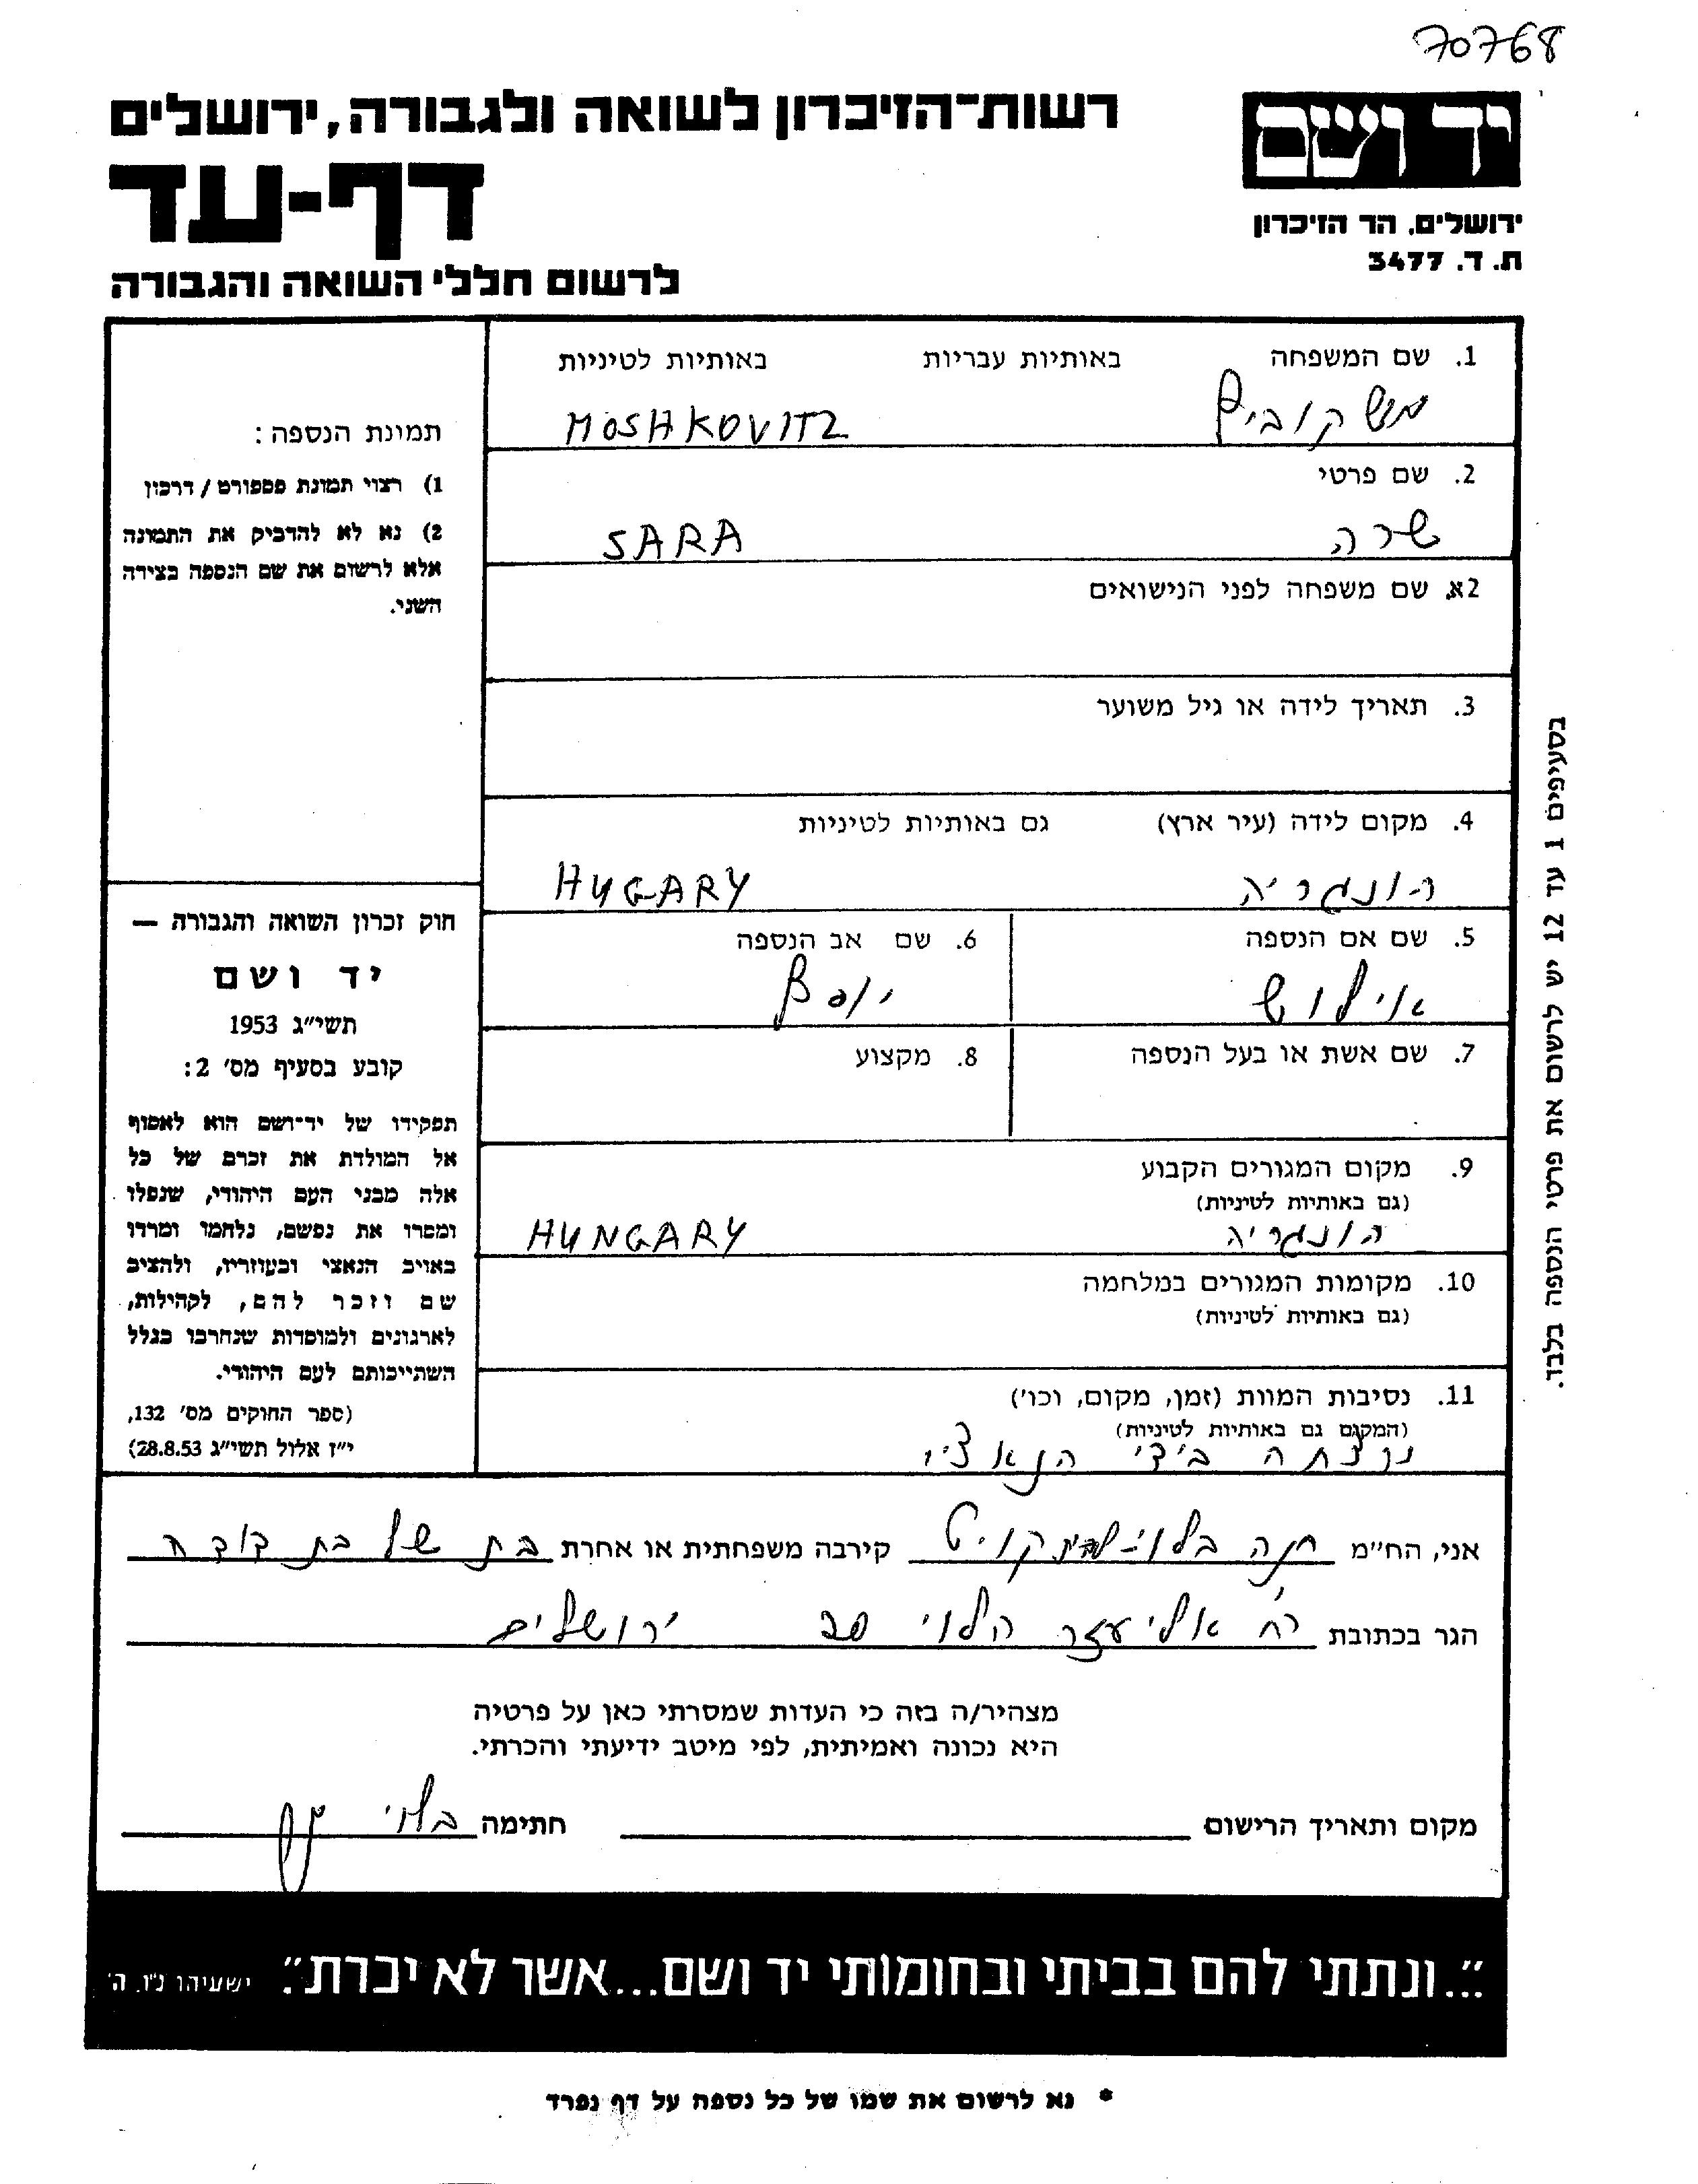 70768
יד ושם
ירושלים, הר הזיכרון
ת. ד. 3477
רשות-הזיכרון לשואה ולגבורה, ירושלים
דף-עד
לרשום חללי השואה והגבורה
1. שם המשפחה באותיות עבריות באותיות לטיניות
מושקוביץ MOSHKOVITZ
2. שם פרטי
שרה SARA
2א. שם משפחה לפני הנישואים
3. תאריך לידה או גיל משוער
4. מקום לידה (עיר ארץ) גם באותיות לטיניות
הונגריה HUGARY
5. שם אם הנספה 6. שם אב הנספה
אילוש יוסף
7. שם אשת או בעל הנספה 8. מקצוע
9. מקום המגורים הקבוע
(גם באותיות לטיניות)
הונגריה HUNGARY
10. מקומות המגורים במלחמה
(גם באותיות לטיניות)
11. נסיבות המוות (זמן, מקום, וכו')
(המקום גם באותיות לטיניות)
נרצחה בידי הנאצי
תמונת הנספה:
1) רצוי תמונת פספורט / דרכון
2) נא לא להדביק את התמונה
אלא לרשום את שם הנספה בצידה
השני.
חוק זכרון השואה והגבורה —
יד ושם
תשי״ג 1953
קובע בסעיף מס' 2:
תפקידו של יד-ושם הוא לאסוף
אל המולדת את זכרם של כל
אלה מבני העם היהודי, שנפלו
ומסרו את נפשם, נלחמו ומרדו
באויב הנאצי ובעוזריו, ולהציב
שם וזכר להם, לקהילות,
לארגונים ולמוסדות שנחרבו בגלל
השתייכותם לעם היהודי.
(ספר החוקים מס' 132,
י״ז אלול תשי״ג 28.8.53)
בסעיפים 1 עד 12 יש לרשום את פרטי הנספה בלבד.
אני, הח״מ חנה בלוי קירבה משפחתית או אחרת בת של בת דודה
הגר בכתובת רח' אליעזר הלוי ירושלים
מצהיר/ה בזה כי העדות שמסרתי כאן על פרטיה
היא נכונה ואמיתית, לפי מיטב ידיעתי והכרתי.
מקום ותאריך הרישום חתימה בלוי חנה
״...ונתתי להם בביתי ובחומותי יד ושם...אשר לא יכרת״. ישעיהו נ״ו, ה'
* נא לרשום את שמו של כל נספה על דף נפרד